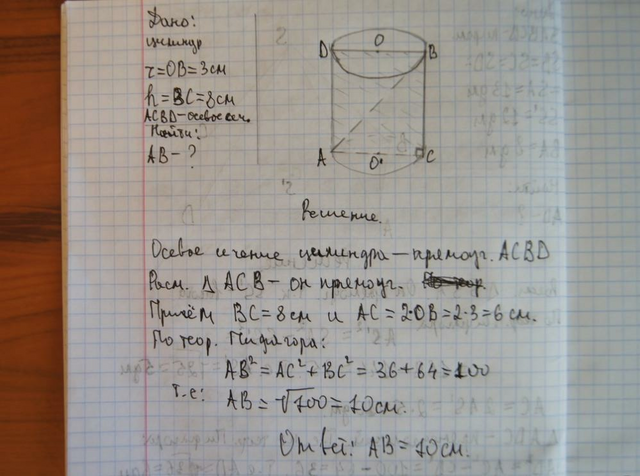 Дано:
цилиндр
r=OB=3см
h=BC=8см
ACBD-осевое сеч.
Найти:
AB-?
D O B
A O' C
Решение.
Осевое сечение цилиндра — прямоуг. ACBD
Расм. Δ ACB - он прямоуг.
Причём BC=8см и AC=2·OB=2·3=6см.
По теор. Пифагора:
AB²=AC²+BC²=36+64=100
т.е:
AB=√100=10см.
Ответ: AB=10см.